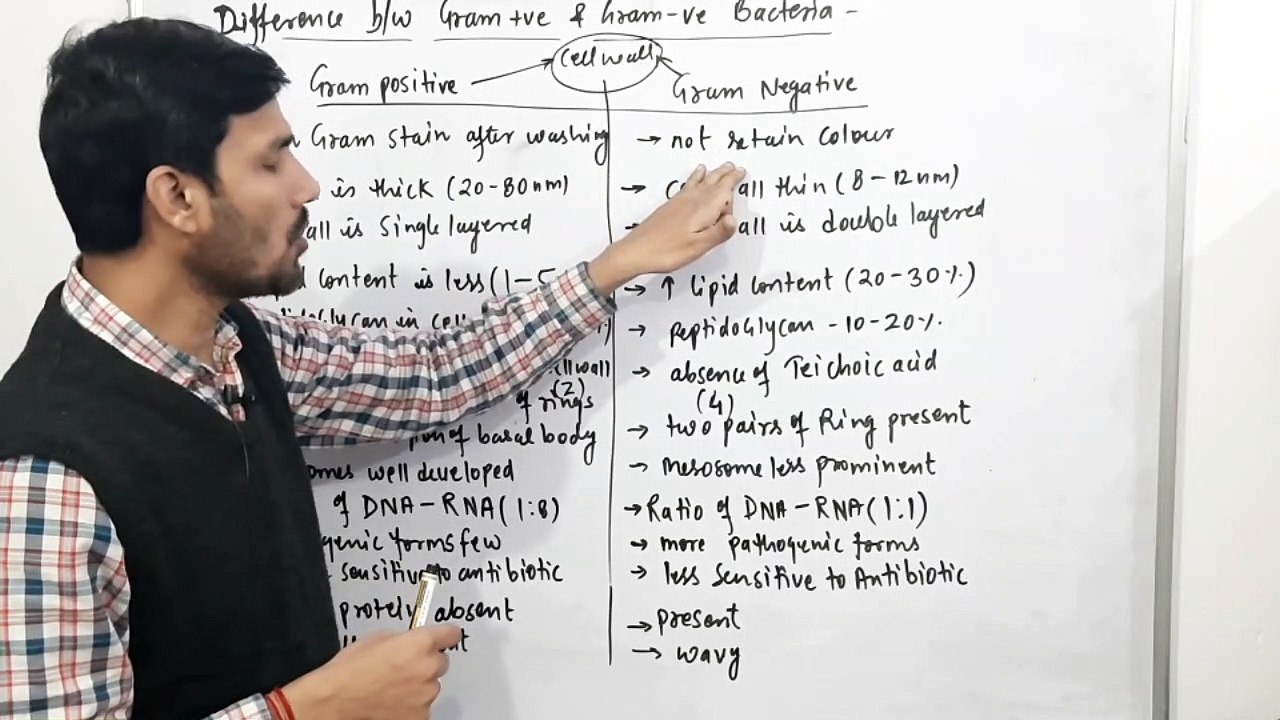 Difference b/w Gram +ve & Gram -ve Bacteria -
cell wall
Gram positive
Gram Negative
Gram stain after washing
→ not retain colour
is thick (20-80nm)
→ all thin (8-12nm)
all is Single layered
all is double layered
content is less (1-5
→ ↑ lipid content (20-30%)
→ peptidoGlycan - 10-20%.
cell wall
→ absence of Teichoic acid
of rings (2)
(4)
→ two pairs of Ring present
of basal body
omes well developed
→ mesosome less prominent
of DNA-RNA (1:8)
→ Ratio of DNA-RNA (1:1)
genic forms few
→ more pathogenic forms
sensitive to antibiotic
→ less Sensitive to Antibiotic
absent
→ present
→ wavy